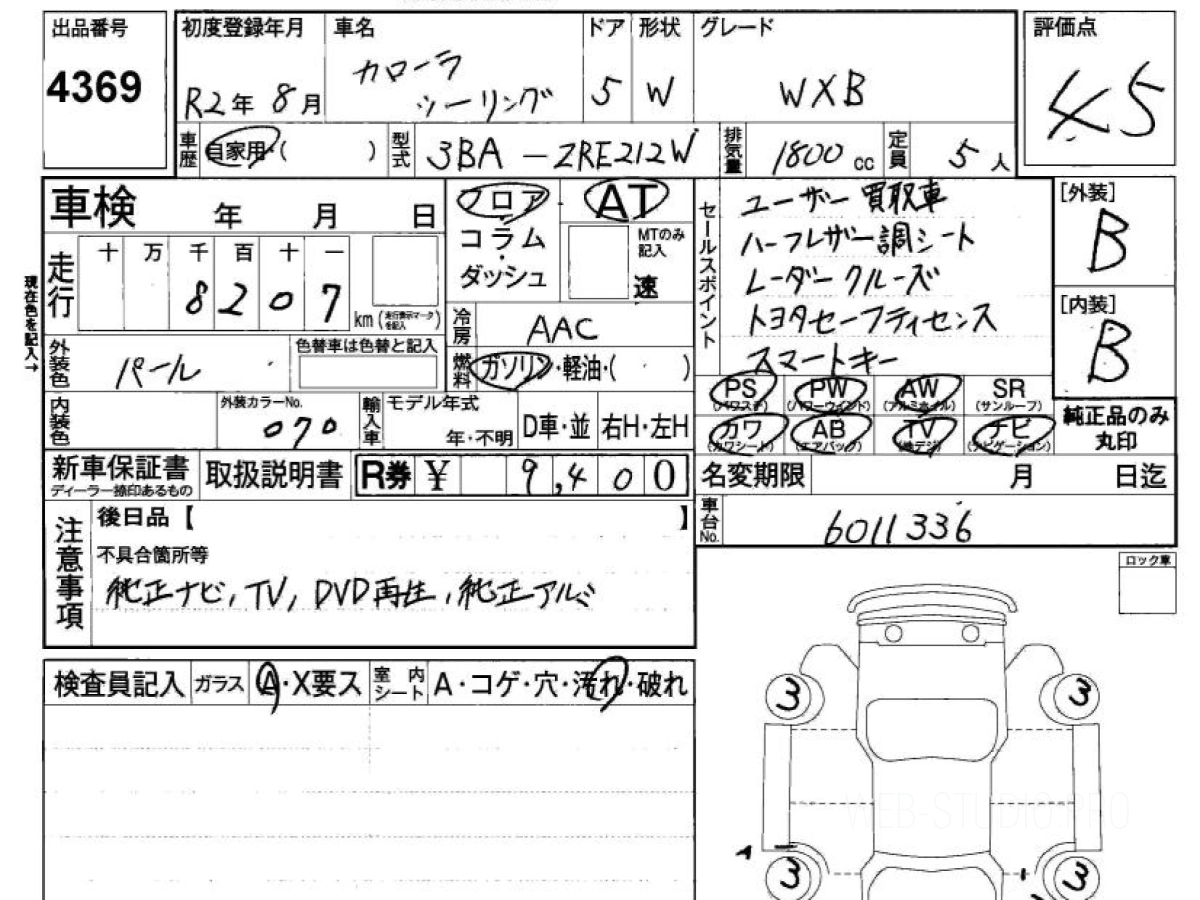 出品番号
4369
初度登録年月 車名 ドア 形状 グレード
R2年 8月 カローラ ツーリング 5 W WXB
評価点
4.5
車歴 自家用・( ) 型式 3BA-ZRE212W 排気量 1800 cc 定員 5人
車検 年 月 日
フロア・コラム・ダッシュ
AT
MTのみ記入
速
セールスポイント
ユーザー買取車
ハーフレザー調シート
レーダークルーズ
トヨタセーフティセンス
スマートキー
[外装]
B
[内装]
B
現在色を記入→
走行 十 万 千 百 十 一
8 2 0 7 km(走行表示マークを記入)
冷房 AAC
燃料 ガソリン・軽油・( )
外装色 パール 色替車は色替と記入
PS (パワステ) PW (パワーウインド) AW (アルミホイル) SR (サンルーフ)
カワ (カワシート) AB (エアバッグ) TV (地デジ) ナビ (ナビゲーション)
純正品のみ丸印
内装色 外装カラーNo. 070 輸入車 モデル年式 年・不明 D車・並 右H・左H
新車保証書 ディーラー捺印あるもの 取扱説明書 R券 ¥ 9,400
名変期限 月 日迄
車台No. 6011336
注意事項
後日品【 】
不具合箇所等
純正ナビ, TV, DVD再生, 純正アルミ
ロック車
検査員記入 ガラス A・X要ス 室内シート A・コゲ・穴・汚れ・破れ
3 3
WEB-STUDIO.PRO
A
3 3